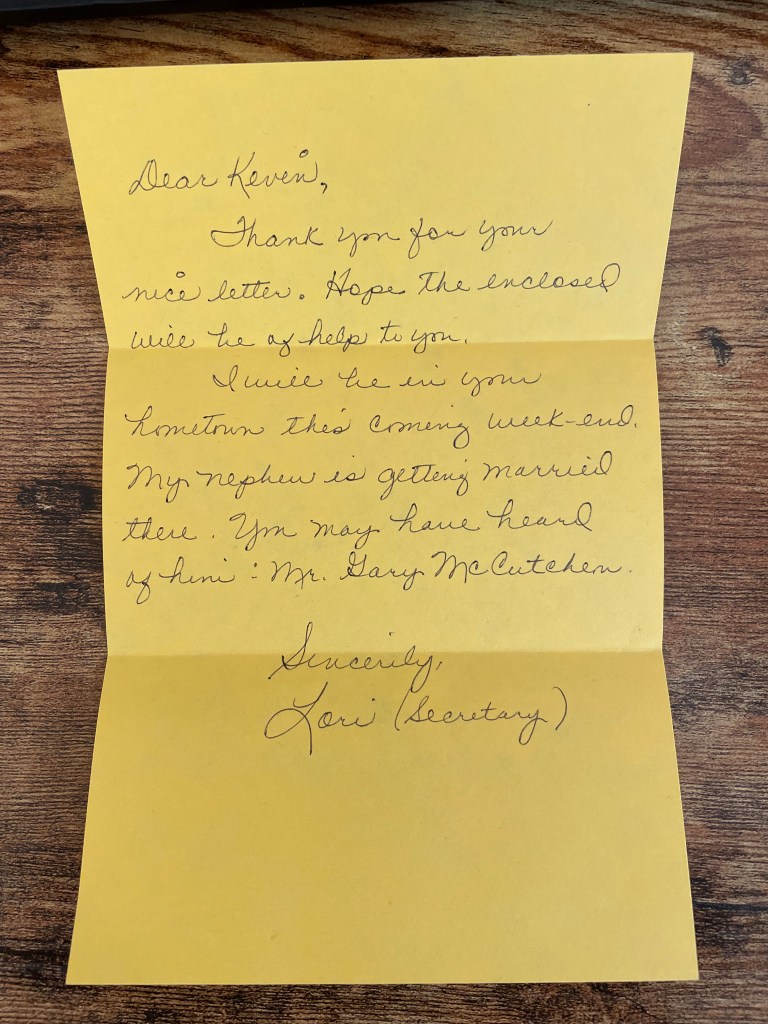 Dear Keven,
Thank you for your
nice letter. Hope the enclosed
will be of help to you.
I will be in your
hometown this coming week-end.
My nephew is getting married
there. You may have heard
of him: Mr. Gary McCutchen.
Sincerily,
Lori (Secretary)